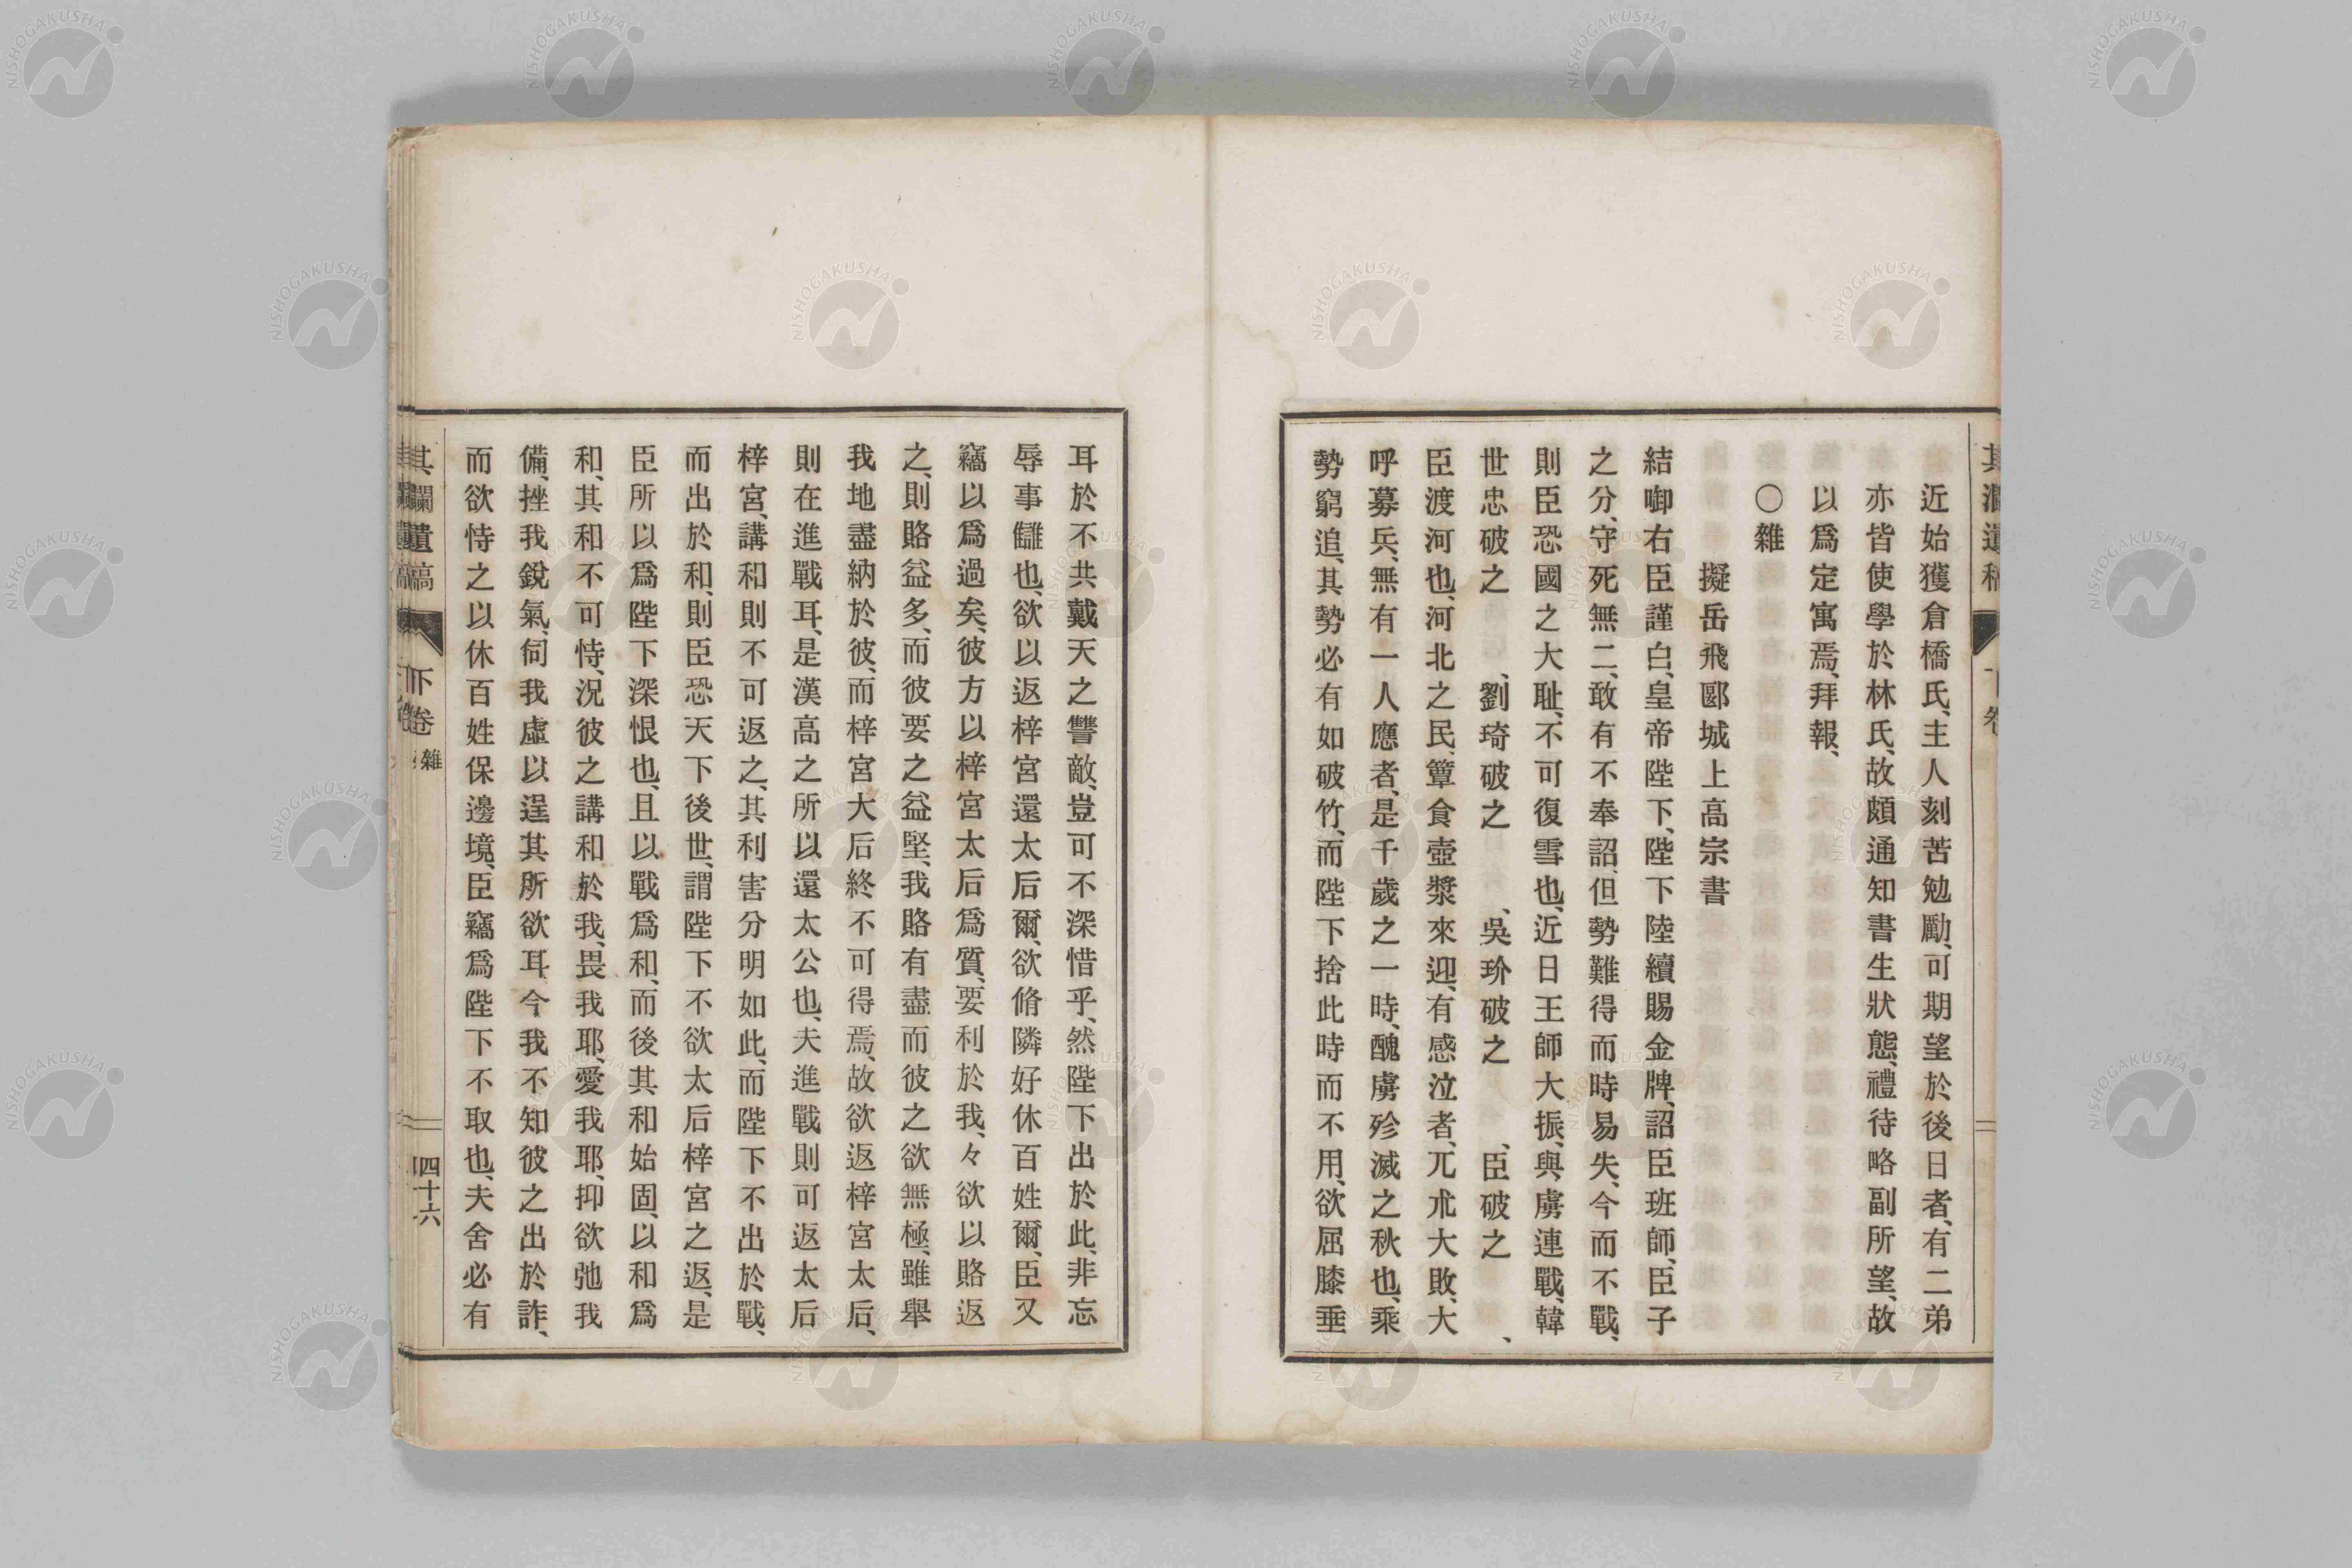 近始獲倉橋氏、主人刻苦勉勵、可期望於後日者、有二弟
亦皆使學於林氏、故頗通知書生狀態、禮待略副所望、故
以爲定寓焉、拜報、
〇雜
擬岳飛郾城上高宗書
結啣右臣謹白、皇帝陛下、陛下陸續賜金牌、詔臣班師、臣子
之分、守死無二、敢有不奉詔、但勢難得而時易失、今而不戰、
則臣恐國之大耻、不可復雪也、近日王師大振、與虜連戰、韓
世忠破之、劉琦破之、吳玠破之、臣破之、
臣渡河也、河北之民、簞食壺漿來迎、有感泣者、兀朮大敗、大
呼募兵、無有一人應者、是千歲之一時、醜虜殄滅之秋也、乘
勢窮追、其勢必有如破竹、而陛下捨此時而不用、欲屈膝垂
耳於不共戴天之讐敵、豈可不深惜乎、然陛下出於此、非忘
辱事讎也、欲以返梓宮還太后爾、欲脩隣好休百姓爾、臣又
竊以爲過矣、彼方以梓宮太后爲質、要利於我、々欲以賂返
之、則賂益多、而彼要之益堅、我賂有盡而彼之欲無極、雖舉
我地盡納於彼、而梓宮大后終不可得焉、故欲返梓宮太后、
則在進戰耳、是漢高之所以還太公也、夫進戰則可返太后
梓宮、講和則不可返之、其利害分明如此、而陛下不出於戰、
而出於和、則臣恐天下後世、謂陛下不欲太后梓宮之返、是
臣所以爲陛下深恨也、且以戰爲和、而後其和始固、以和爲
和、其和不可恃、況彼之講和於我、畏我耶、愛我耶、抑欲弛我
備、挫我銳氣、伺我虛以逞其所欲耳、今我不知彼之出於詐、
而欲恃之以休百姓保邊境、臣竊爲陛下不取也、夫舍必有
其瀾遺稿 下卷 雜 四十六